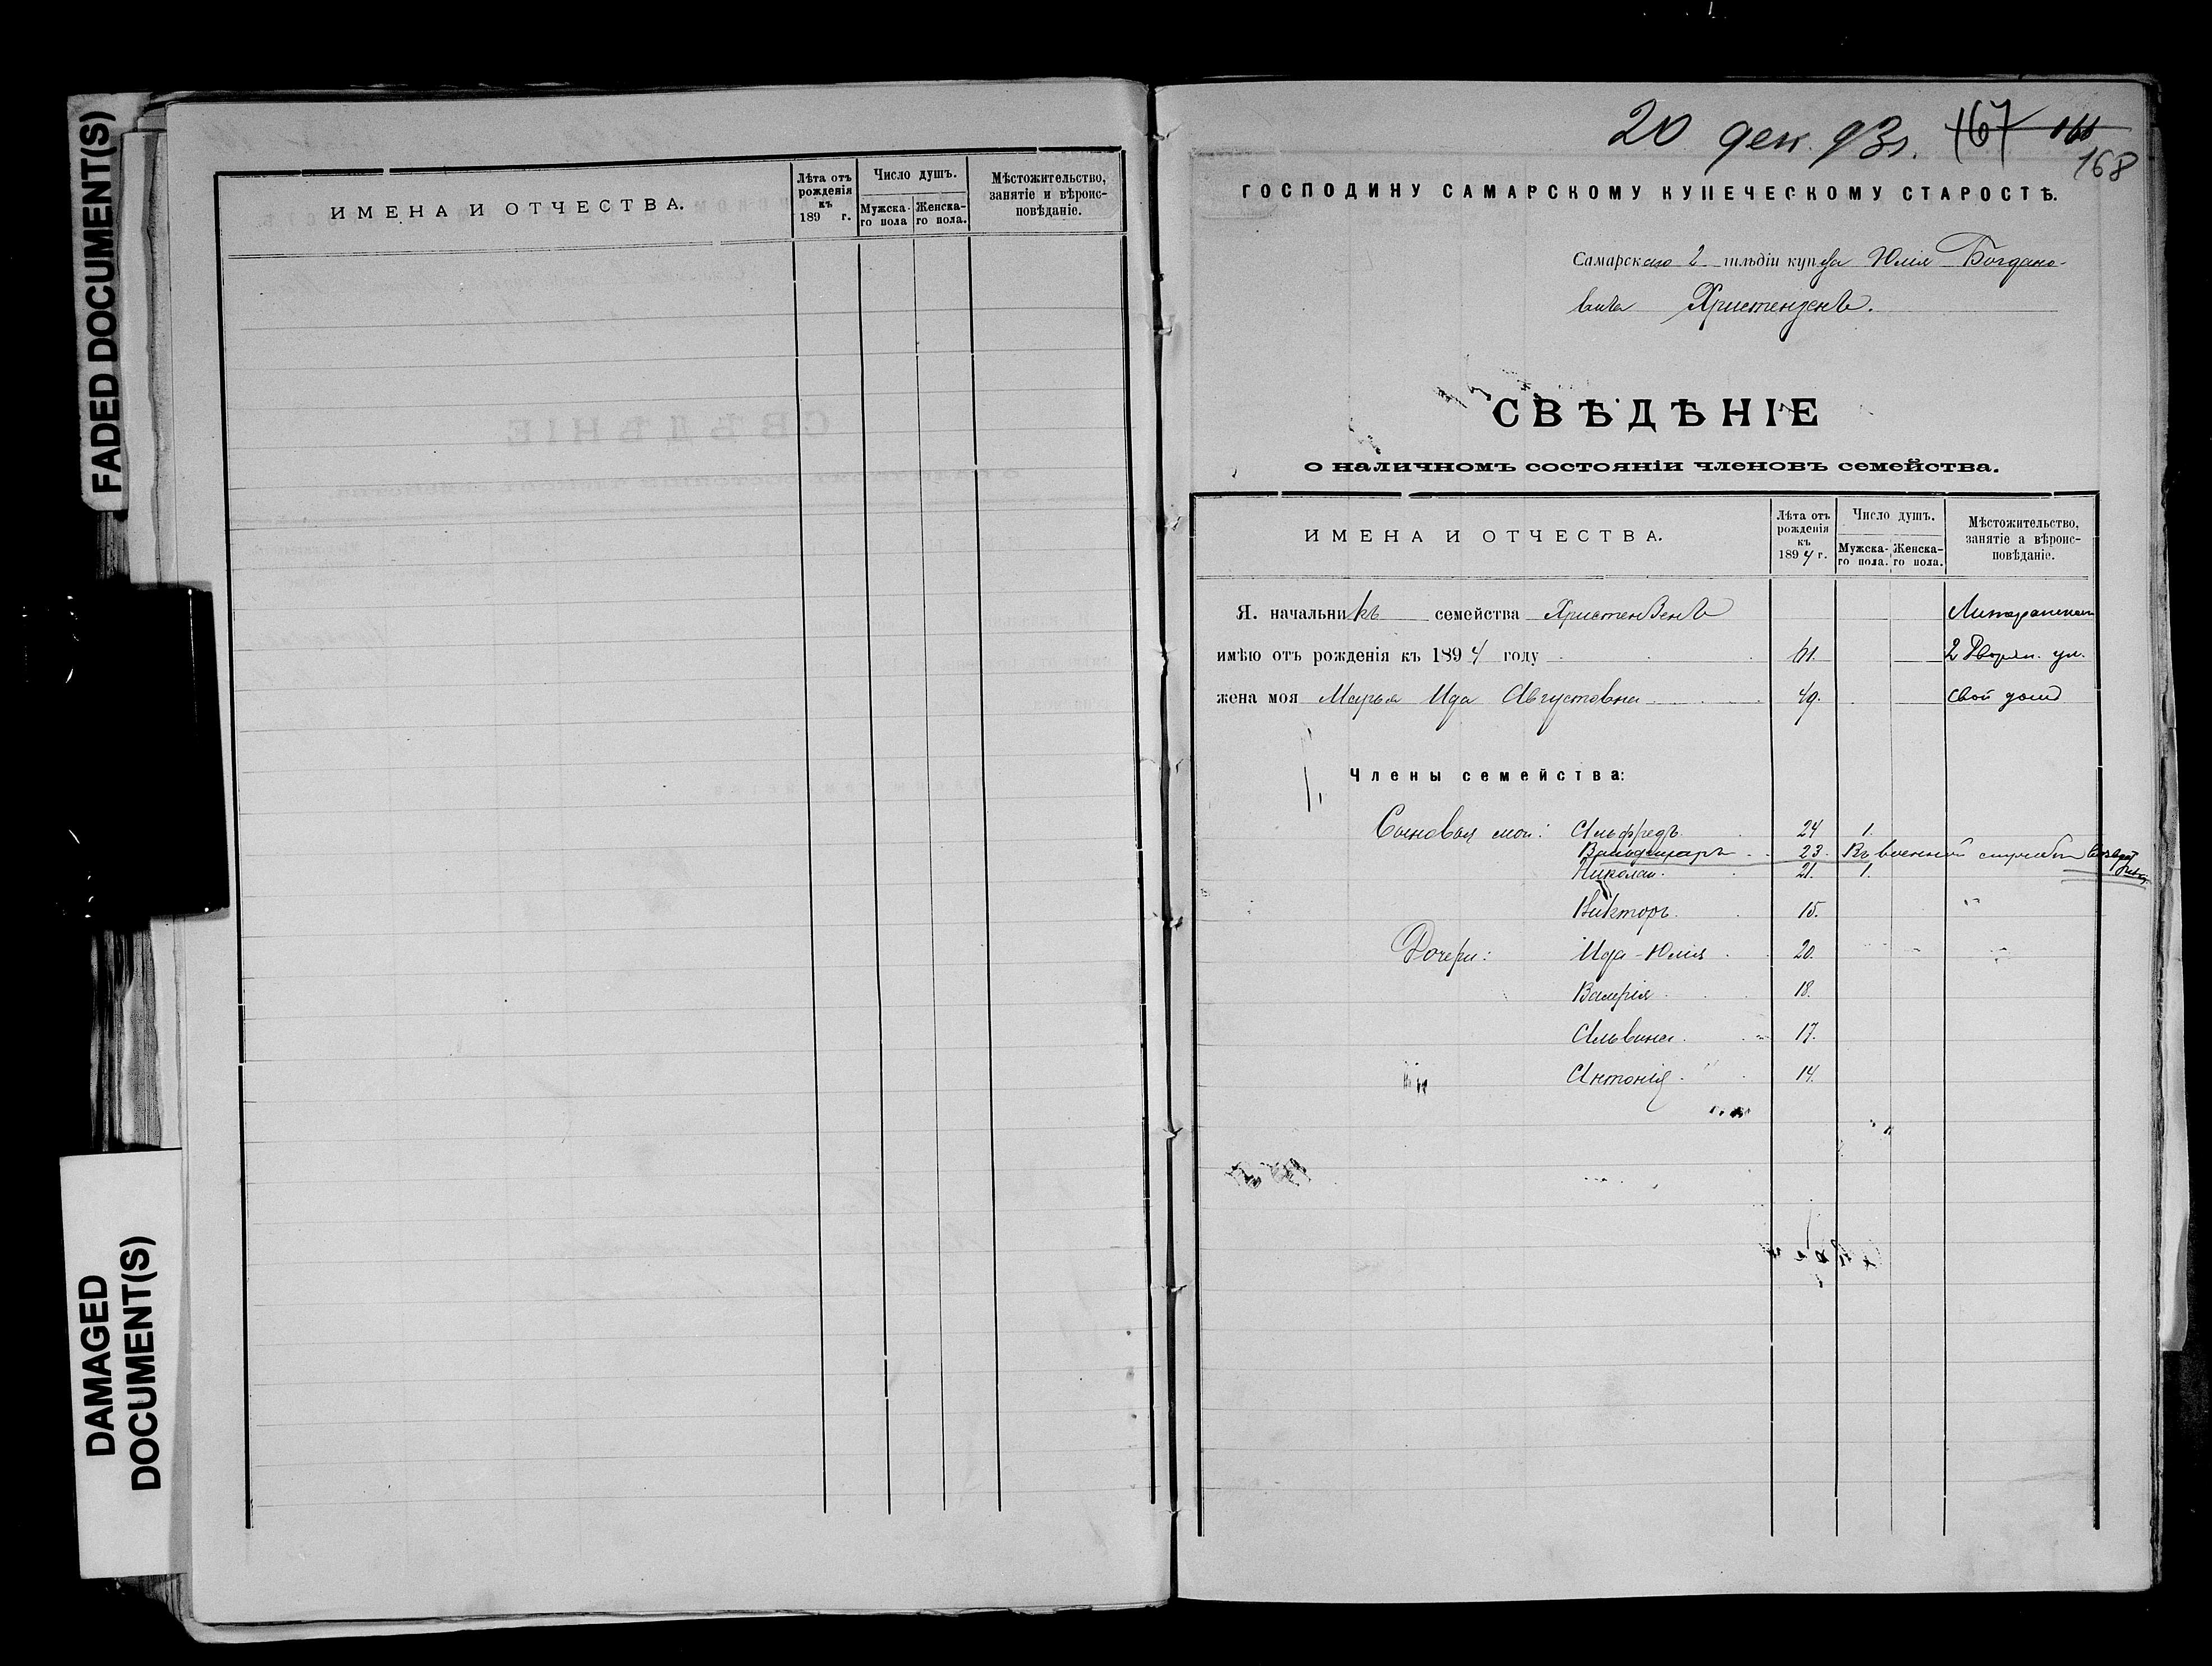 FADED DOCUMENT(S)
DAMAGED
DOCUMENT(S)
ИМЕНА И ОТЧЕСТВА.
Лѣта отъ рожденія къ 189 г.
Число душъ.
Мужска-го пола
Женска-го пола.
Мѣстожительство, занятіе и вѣроис-повѣданіе.
20 дек. 93 г. 167 168
ГОСПОДИНУ САМАРСКОМУ КУПЕЧЕСКОМУ СТАРОСТѢ.
Самарскаго 2 гильдіи купца Юлія Богдано-
вича Христензенъ.
СВѢДѢНІЕ
о наличномъ состояніи членовъ семейства.
ИМЕНА И ОТЧЕСТВА.
Лѣта отъ рожденія къ 1894 г.
Число душъ.
Мужска-го пола.
Женска-го пола.
Мѣстожительство, занятіе а вѣроис-повѣданіе.
Я. начальникъ семейства Христензенъ
имѣю отъ рожденія къ 1894 году 61. 2 Дворян. ул.
жена моя Марья Ида Августовна 49. свой домъ
Члены семейства:
Сыновья мои: Альфредъ. 24 1.
Вальдемаръ 23. Въ военной службѣ
Николай. 21. 1.
Викторъ. 15. "
Дочери: Ида-Юлія 20.
Валерія 18.
Альвина. 17.
Антонія 14.